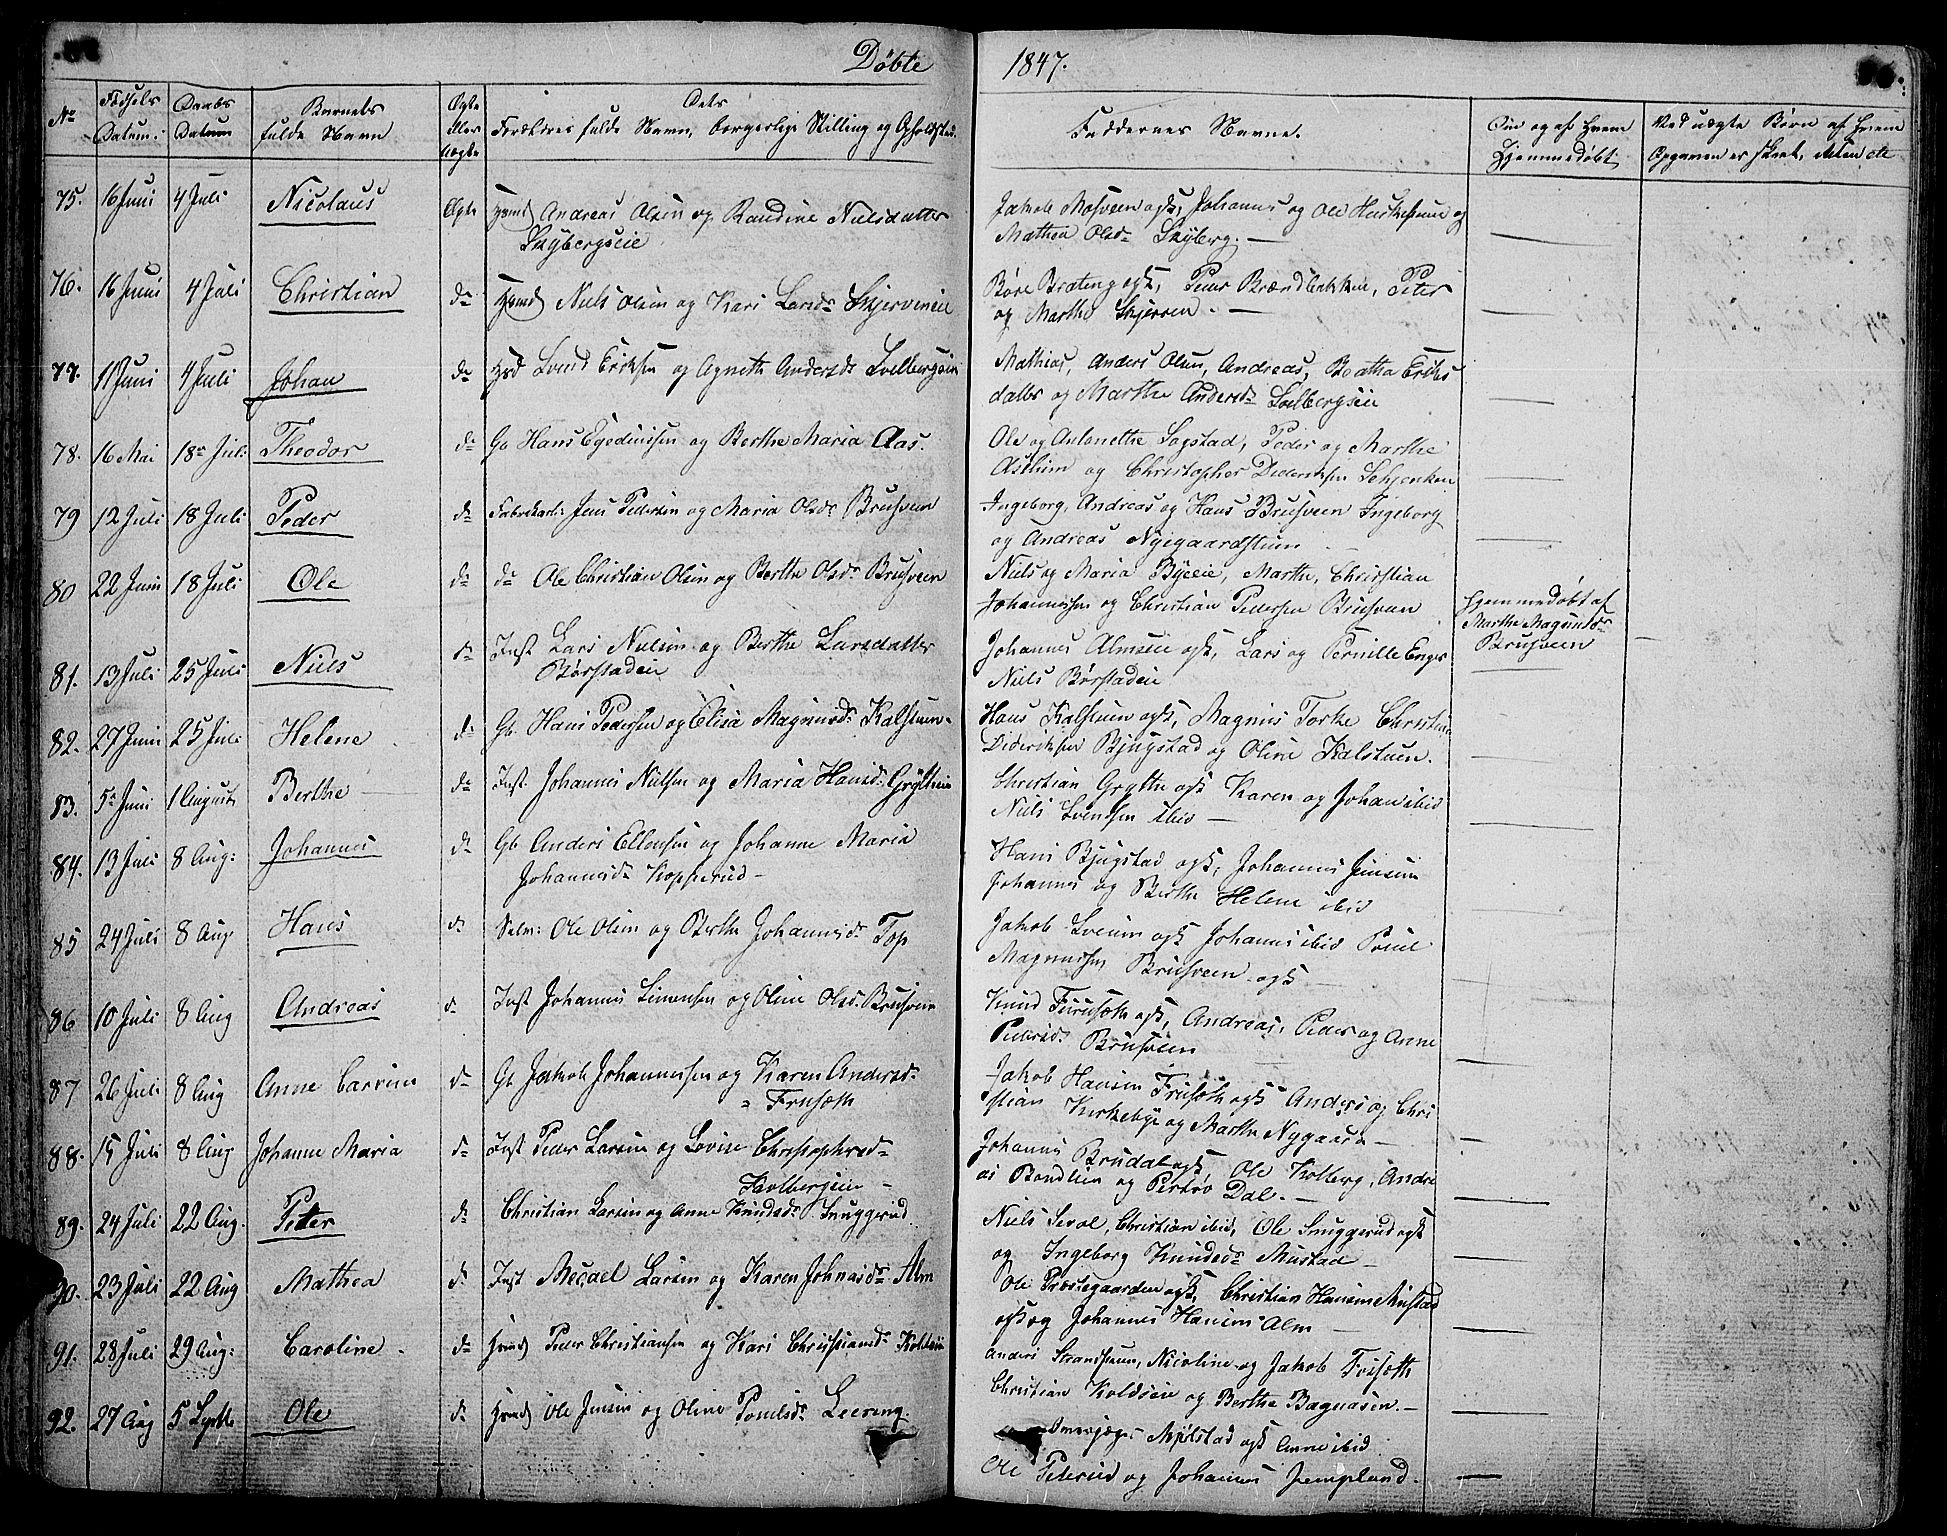 Døbte 1847.
No Fødsels Datum. Daabs Datum Barnets fulde Navn Ægte eller uægte Forældres fulde Navn, borgerlige Stilling og Opholdssted. Faddernes Navne. Om og af hvem Hjemmedøbt Ved uægte Børn af hvem Opgaven er skeet, Attester etc
75. 16 Juni 4 Juli Nicolaus Ægte Andreas Olsen og Randine Nielsdatter
Skybergseie
Jakob Mosveen ogk, Johannes og Ole og
Mathea Olsdr Skyberg. —
76. 16 Juni 4 Juli Christian do Hmd Niels Olsen og Kari Larsdr Skjerveneie
Børe Braten ogk, Peter Brændbakken, Peter
og Marthe Skjerven. —
77. 11 Juni 4 Juli Johan do Svend Eriksen og Agnethe Andersdr
Mathias, Anders Olsen, Andreas, Beatha Eriks
datter og Marthe Andersdr
78. 16 Mai 18de Jul: Theodor do Hans Egedinssen og Berthe Maria Aas.
Ole og Antonethe Sogstad, Peder og Marthe
og Christopher Dideriksen
79 12 Juli 18 Juli Peder do Fabrikarb: Jens Pedersen og Maria Olsdr Brusveen
Ingeborg, Andreas og Hans Brusveen Ingeborg
og Andreas Nyegaardstuen
80 22 Juni 18 Juli Ole do do Ole Christian Olsen og Berthe Olsdr Brusveen
Niels og Maria Byeeie, Marthe, Christian
Johannessen og Christian Pedersen Brusveen
Hjemmedøbt af
Marthe Magnusdr
Brusveen
81. 13 Juli 25 Juli Niels do Inst Lars Nielsen og Berthe Larsdatter
Børstadeie
Johannes Almseie ogk, Lars og Pernille Enger
Niels Børstadeie
82. 27 Juni 25 Juli Helene do Gb. Hans Pedersen og Elisa Magnusdr Kalstuen.
Hans Kalstuen ogk, Magnus Torke Christian
Dideriksen Bjugstad og Oline Kalstuen.
83. 5te Juni 1 August Berthe do Inst Johannes Nielsen og Maria Hansdr
Christian Grythe ogk Karen og Johan ibid
Niels Svendsen ibid —
84. 13 Juli 8 Aug: Johannes do Gb Anders Ellensen og Johanne Maria
Johannesdr Kopperud —
Hans Bjugstad ogk, Johannes Jensen
Johannes og Berthe Helene ibid
85 24 Juli 8 Aug Hans do Selv: Ole Olsen og Berthe Johannesdr Top
Jakob Sveum ogk Johannes ibid Poul
Magnussen Brusveen ogk —
86 10 Juli 8 Aug Andreas do Inst Johannes Simensen og Oline Olsd. Brusveen
Knud Furuseth ogk, Andreas, Peder og Anne
Pedersdr Brusveen
87 26 Juli 8 Aug Anne Carrine do Gb Jakob Johannessen og Karen Andersdr
Fruseth
Jakob Hansen Fruseth ogk Anders og Chri
stian Kirkebye og Marthe Nygaard —
88. 15 Juli 8 Aug Johanne Maria do Inst Peder Larsen og Lovise Christophersdr
Kolbergseie —
Johannes Brudal ogk, Ole Kolberg, Andre
as Bondlien og Dal. —
89. 24 Juli 22 Aug. Peter do Christian Larsen og Anne Knudsdr Snuggerud
Niels Sevol, Christian ibid, Ole Snuggerud ogk
og Ingeborg Knudsdr Mustad —
90. 23 Juli 22 Aug Mathea do Inst Mechael Larsen og Karen Johnsdr Alm
Ole Præstegaarden ogk, Christian Hansen Mustad
ogk og Johannes Hansen Alm —
91. 28 Juli 29 Aug: Caroline do Hmd Peder Christiansen og Kari Christiansdr Koldseie
Anders Strandstuen, Nicoline og Jakob Fruseth
Christian Koldseie og Berthe Bagaasen. —
92. 27 Aug 5 Septb Ole do Hmd Ole Jensen og Oline Poulsdr Leereng
Mjølstad ogk Anne ibid
Ole Pederud og Johannes Jempland.